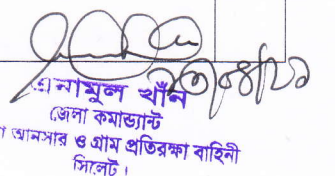 ২৩/০৪/২১
এনামুল খাঁন
জেলা কমান্ড্যান্ট
আনসার ও গ্রাম প্রতিরক্ষা বাহিনী
সিলেট।